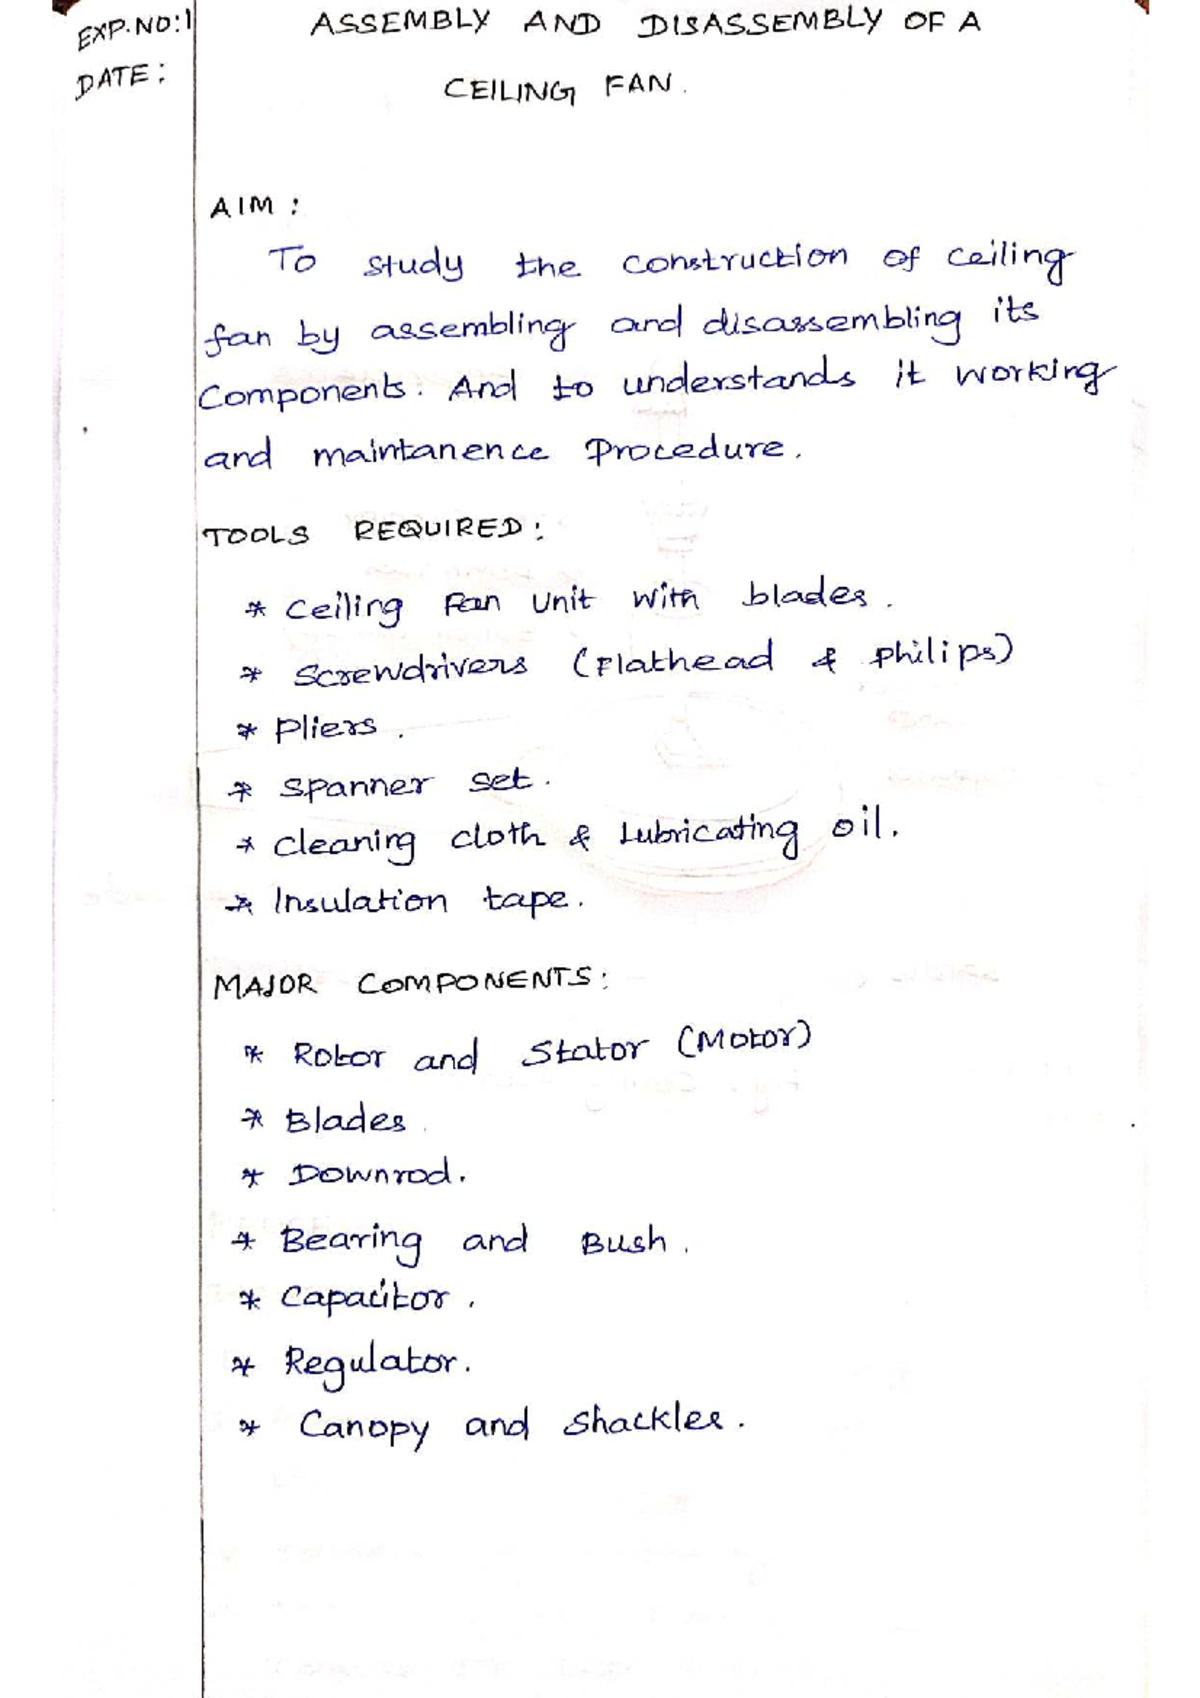 EXP.NO:1
DATE:
ASSEMBLY AND DISASSEMBLY OF A
CEILING FAN.
AIM:
To study the construction of ceiling
fan by assembling and disassembling its
Components. And to understands it working
and maintanence Procedure.
TOOLS REQUIRED:
* Ceiling Fan Unit with blades.
* Screwdrivers (Flathead & Philips)
* Pliers.
* Spanner set.
* Cleaning cloth & Lubricating oil.
* Insulation tape.
MAJOR COMPONENTS:
* Rotor and Stator (Motor)
* Blades.
* Downrod.
* Bearing and Bush.
* Capacitor.
* Regulator.
* Canopy and Shackles.